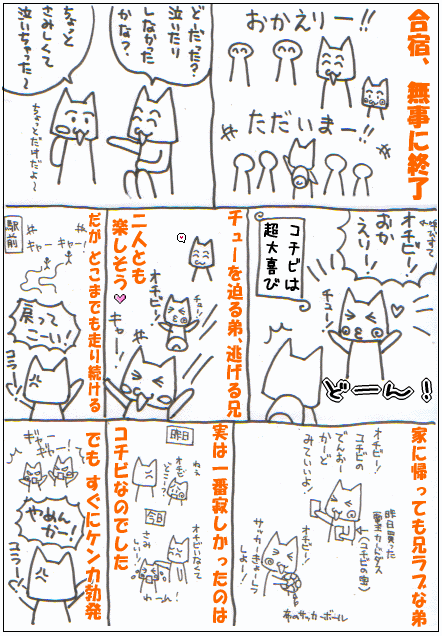 合宿、無事に終了
おかえりー!!
ただいまー!!
どだった?
泣いたり
しなかった
かな?
ちょっと
さみしくて
泣いちゃった〜
ちょっとだけだよ〜
オチビ!
おか
えり!!
チュー!
どーん!
コチビは
超大喜び
チューを迫る弟、逃げる兄
チュー!
オチビ!
キャー!
二人とも
楽しそう
だが どこまでも走り続ける
駅前
キャー!
キャー!
戻って
こーい!
コラー!
家に帰っても兄ラブな弟
オチビー!
コチビの
でんおー
かーど
みていいよ!
昨日買った
電王カードガム
(コチビの宝)
オチビ!
サッカーきょーも
しよー!
布のサッカーボール
実は一番寂しかったのは
コチビなのでした
昨日
ねぇ
オチビ
どこ?
今日
オチビいなくて
さみ
しい!
わーん!
でも すぐにケンカ勃発
ギャー
ギャー!
やめん
かー!
コラー!